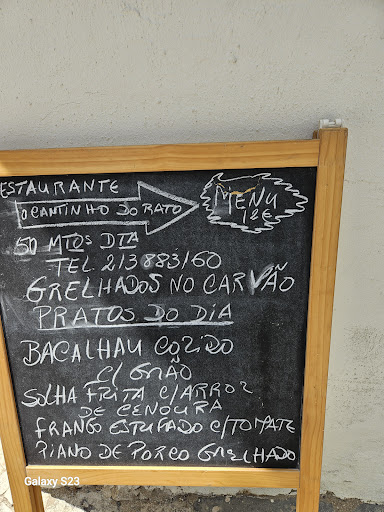 ESTAURANTE
O CANTINHO DO RATO
MENU
12€
50 MTOS DTA
TEL 213883160
GRELHADOS NO CARVÃO
PRATOS DO DIA
BACALHAU COZIDO
C/ GRÃO
SOLHA FRITA C/ARROZ
DE CENOURA
FRANGO ESTUFADO C/TOMATE
PIANO DE PORCO GRELHADO
Galaxy S23